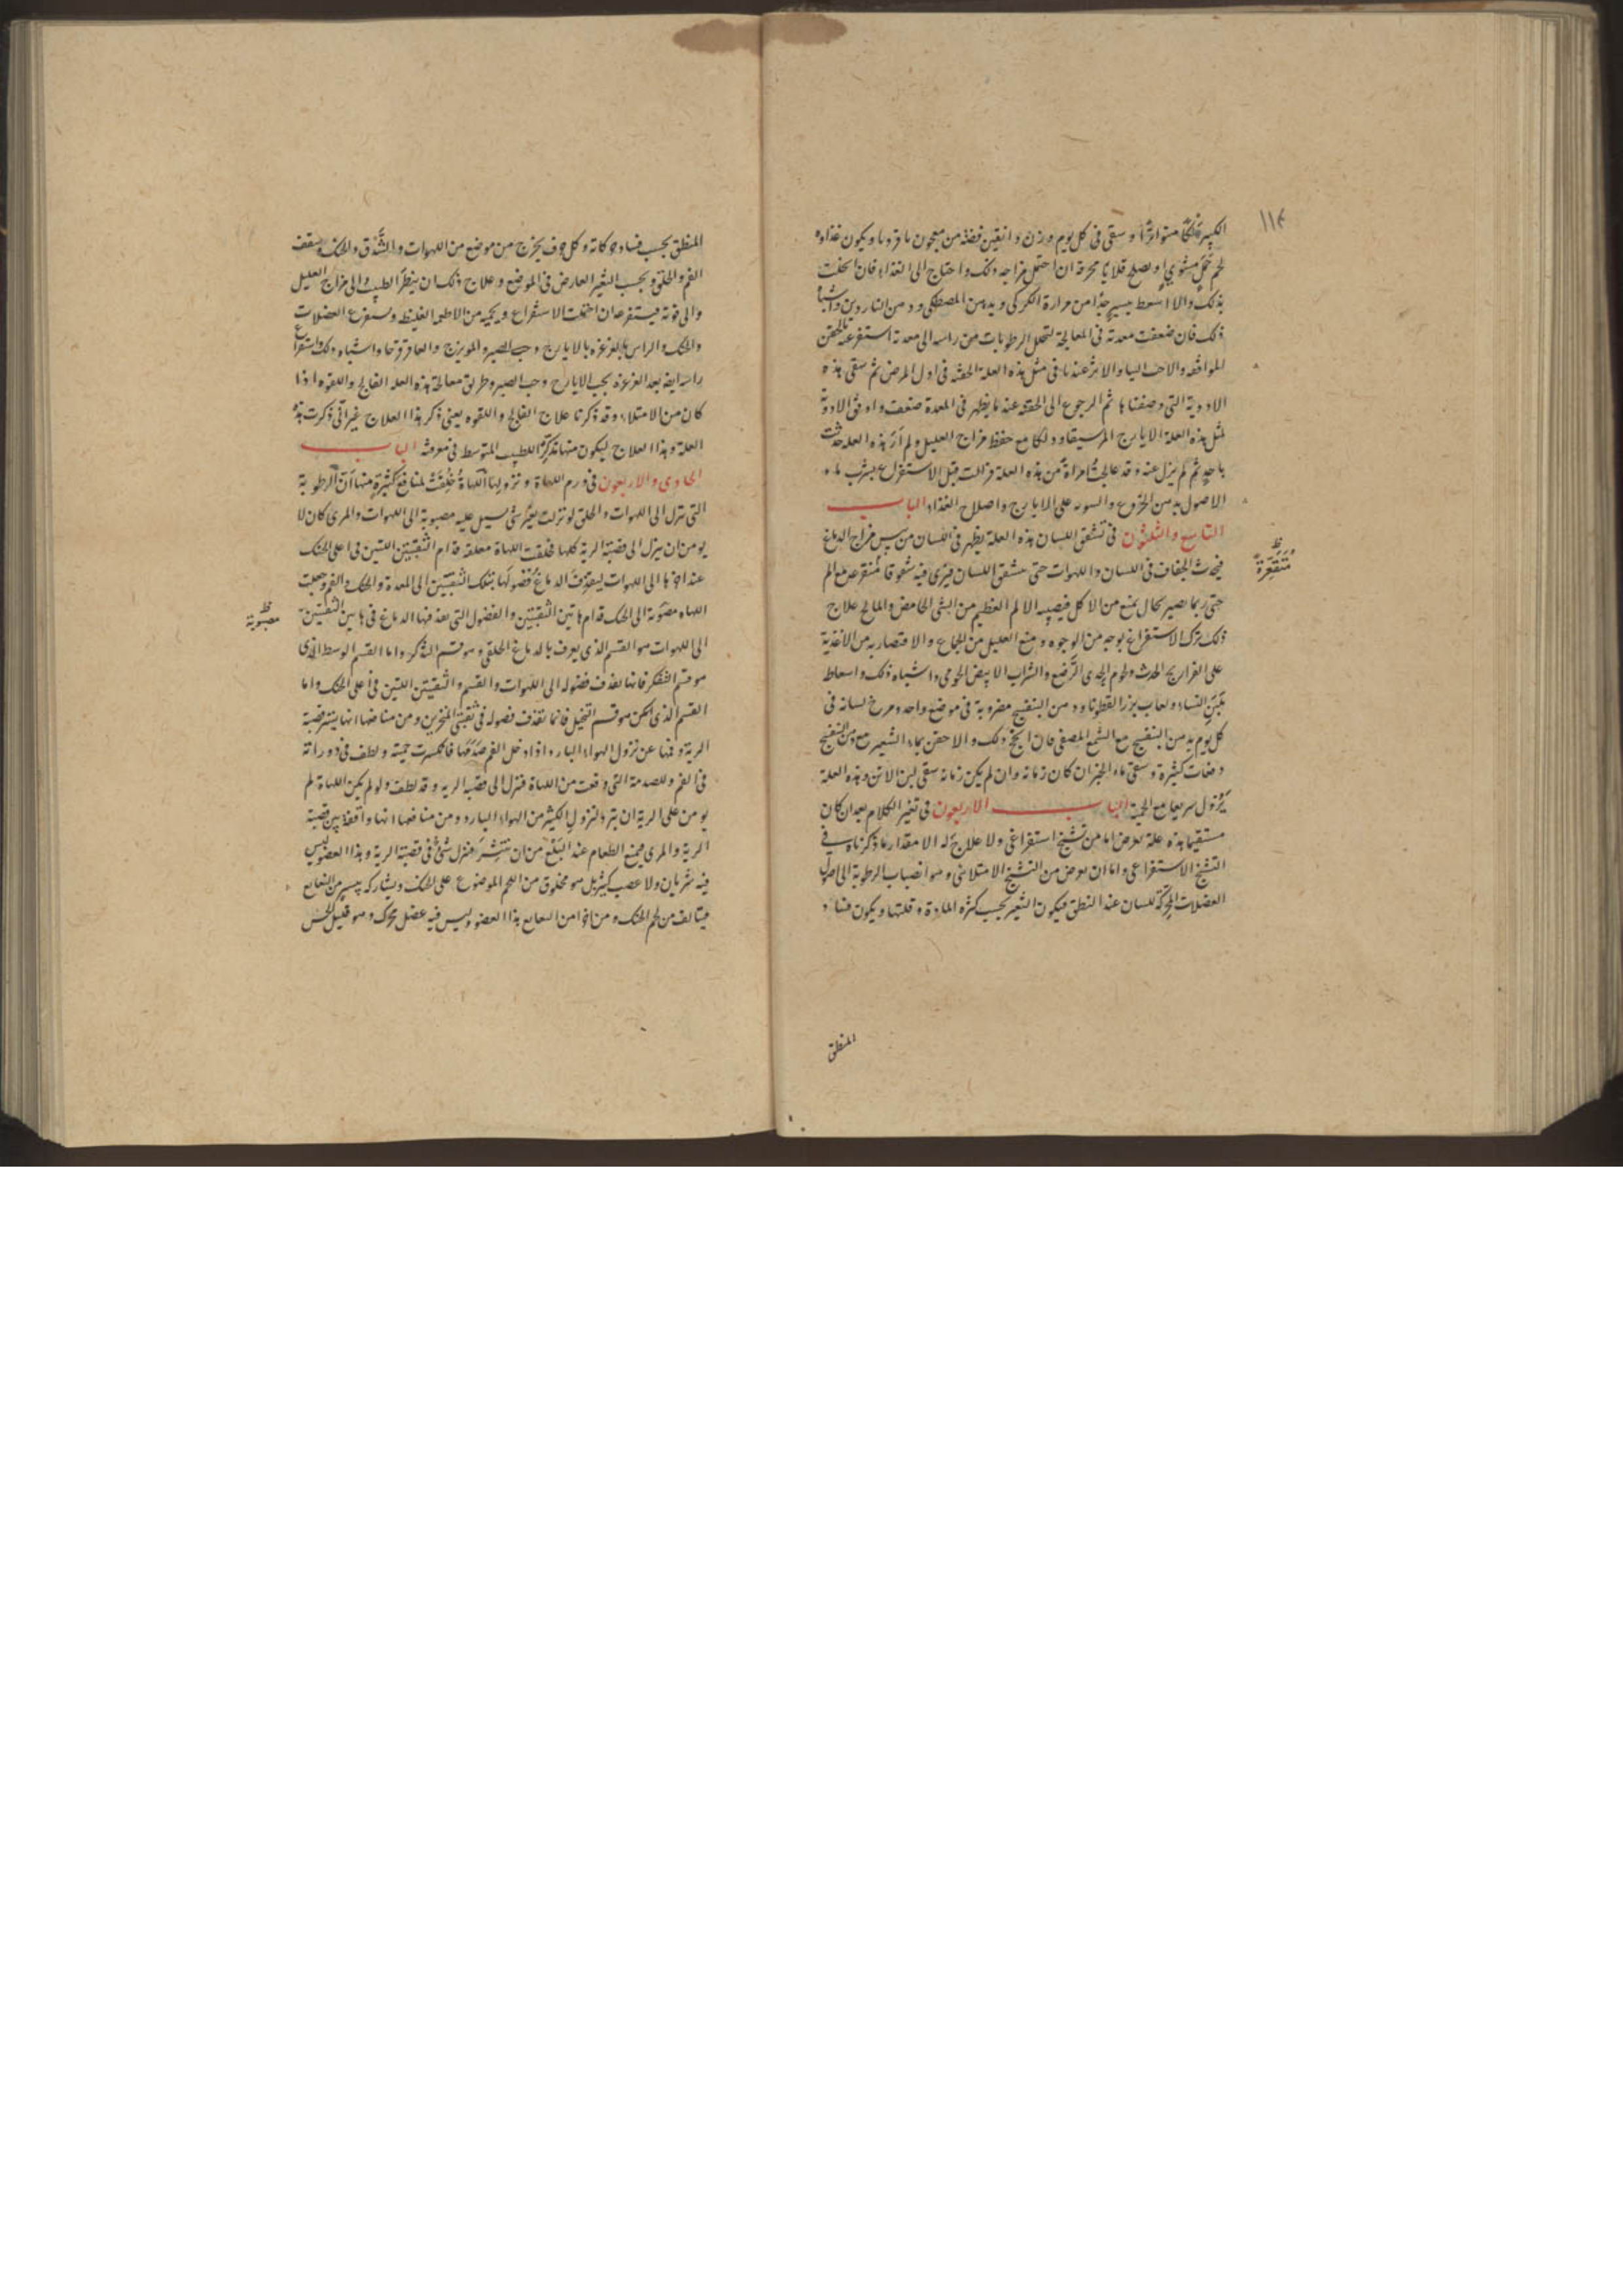 ١١٤
الكبير دلكا متواترا و سقى فى كل يوم وزن دانقين فضة من معجون باقروبا ويكون غذاوه
لحم حمل مشوى او يصلح قلايا محرقة ان احتمل مزاجه ذلك واحتاج الى الغذاء فان انحلت
بذلك والا اسعط بيسير جدا من مرارة الكركى و بدهن المصطكى و دهن الناردين واشباه
ذلك فان ضعفت معدته فى المعالجة لتحلل الرطوبات من راسه الى معدته استفرغته بالحقن
الموافقة والاحب الينا والاثر عندنا فى مثل هذه العلة الحقنة فى اول المرض ثم سقى هذه
الادوية التى وصفناها ثم الرجوع الى الحقنة عند ما يظهر فى المعدة ضعف واوفق الادوية
لمثل هذه العلة الايارج مع حفظ مزاج العليل ولم ار هذه العلة حدثت
باحد ثم لم يزل عنه وقد عالجت امراة من هذه العلة فزالت قبل الاستفراغ بشرب ماء
الاصول بدهن الخروع و على الايارج واصلاح الغذاء الباب
التاسع والثلثون فى تشقق اللسان هذه العلة يظهر فى اللسان من يبس مزاج الدماغ
متقعرة ظ
فيحدث الجفاف فى اللسان واللهوات حتى يتشقق اللسان فيرى فيه شقوقا متقرعة مع الم
حتى ربما يصير بحال يمنع من الاكل فيصيبه الالم العظيم من الشى الحامض والمالح علاج
ذلك ترك الاستفراغ بوجه من الوجوه و منع العليل من الجماع والاقتصار به من الاغذية
على الفراريج الحدث ولحوم الجدى الرضع والشراب الابيض واشباه ذلك واسعاط
بلبن النساء ولعاب بزر القطونا ودهن البنفسج مضروبة فى موضع واحد ومرخ لسانه فى
كل يوم بدهن البنفسج مع الشمع المصفى فان انجح ذلك والا حقن بماء الشعير مع دهن البنفسج
دفعات كثيرة و سقى ماء الجبن ان كان زمانه وان لم يكن زمانه سقى لبن الاتن وهذه العلة
يزول سريعا مع الحمية الباب الاربعون فى تغير الكلام بعد ان كان
مستقيما هذه علة يعرض اما من تشنج استفراغى ولا علاج له الا مقدار ما ذكرناه فى
التشنج الاستفراغى واما ان يعرض من التشنج الامتلائى وهو انصباب الرطوبة الى اصول
العضلات المحركة للسان عند النطق فيكون التغير بحسب كثرة المادة وقلتها ويكون فساد
المنطق
المنطق بحسب فساد حركاته وكل حرف يخرج من موضع من اللهوات والشدق والحنك وسقف
الفم والحلق وبحسب التغير العارض فى الموضع وعلاج ذلك ان ينظر الطبيب الى مزاج العليل
والى قوته فيستفرغه ان احتملت الاستفراغ ويحميه من الاطعمة الغليظة ويستفرغ العضلات
والحنك والراس بالغرغرة بالايارج وحب الصبر والمويزج والعاقرقرحا واشباه ذلك واستفراغ
راسه ايضا بعد الغرغرة بحب الايارج وحب الصبر وطريق معالجة هذه العلة الفالج واللقوة اذا
كان من الامتلاء وقد ذكرنا علاج الفالج واللقوة يعنى ذكر هذا العلاج غير انى ذكرت هذه
العلة وهذا العلاج ليكون منها تذكرة للطبيب المتوسط فى معرفته الباب
الحادى والاربعون فى ورم اللهاة و نزولها اللهاة خلقت لمنافع كثيرة منها ان الرطوبة
التى تنزل الى اللهوات والحلق لو نزلت بغير شى يسيل عليه مصبوبة الى اللهوات والمرى كان لا
يومن ان ينزل الى قصبة الرية كلها فخلقت اللهاة معلقة قدام الثقبتين اللتين فى اعلى الحنك
عند اخرها الى اللهوات ليقذف الدماغ فضولها بتلك الثقبتين الى المعدة والحنك والفم وجعلت
اللهاه مصوبة الى الحنك قدام هاتين الثقبتين والفضول التى يقذفها الدماغ فى هاتين الثقبتين
مصبوبة ظ
الى اللهوات هو القسم الذى يعرف بالدماغ الخلفى وهو قسم الذكر واما القسم الوسط الذى
هو قسم الفكر فانها يقذف فضوله الى اللهوات والفم والثقبتين اللتين فى اعلى الحنك واما
القسم الذى هو قسم التخيل فانما تقذف فضوله فى ثقبتى المنخرين ومن منافعها انها يستر قصبة
الرية وفمها عن نزول الهواء البارد اذا دخل الفم صدمها فانكسرت حميته ولطف فى دورانه
فى الفم وللصدمة التى وقعت من اللهاة فنزل الى قصبة الرية وقد لطف ولو لم يكن اللهاة لم
يومن على الرية ان يبرد لنزول الكثير من الهواء البارد ومن منافعها انها واقفة بين قصبة
الرية والمرى فيمنع الطعام عند البلع من ان ينتشر فينزل شى فى قصبة الرية وهذا العضو ليس
فيه شريان ولا عصب كثير بل هو مخلوق من اللحم الموضوع على الحنك ويشاركه يسير من
من لحم الحنك ومن هذا العضو وليس فيه عضل يحرك وهو قليل الحس